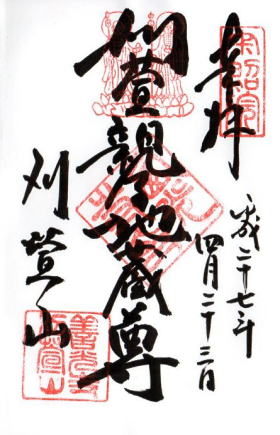 奉拝
平成二十七年
四月二十三日
刈萱親子地蔵尊
刈萱山